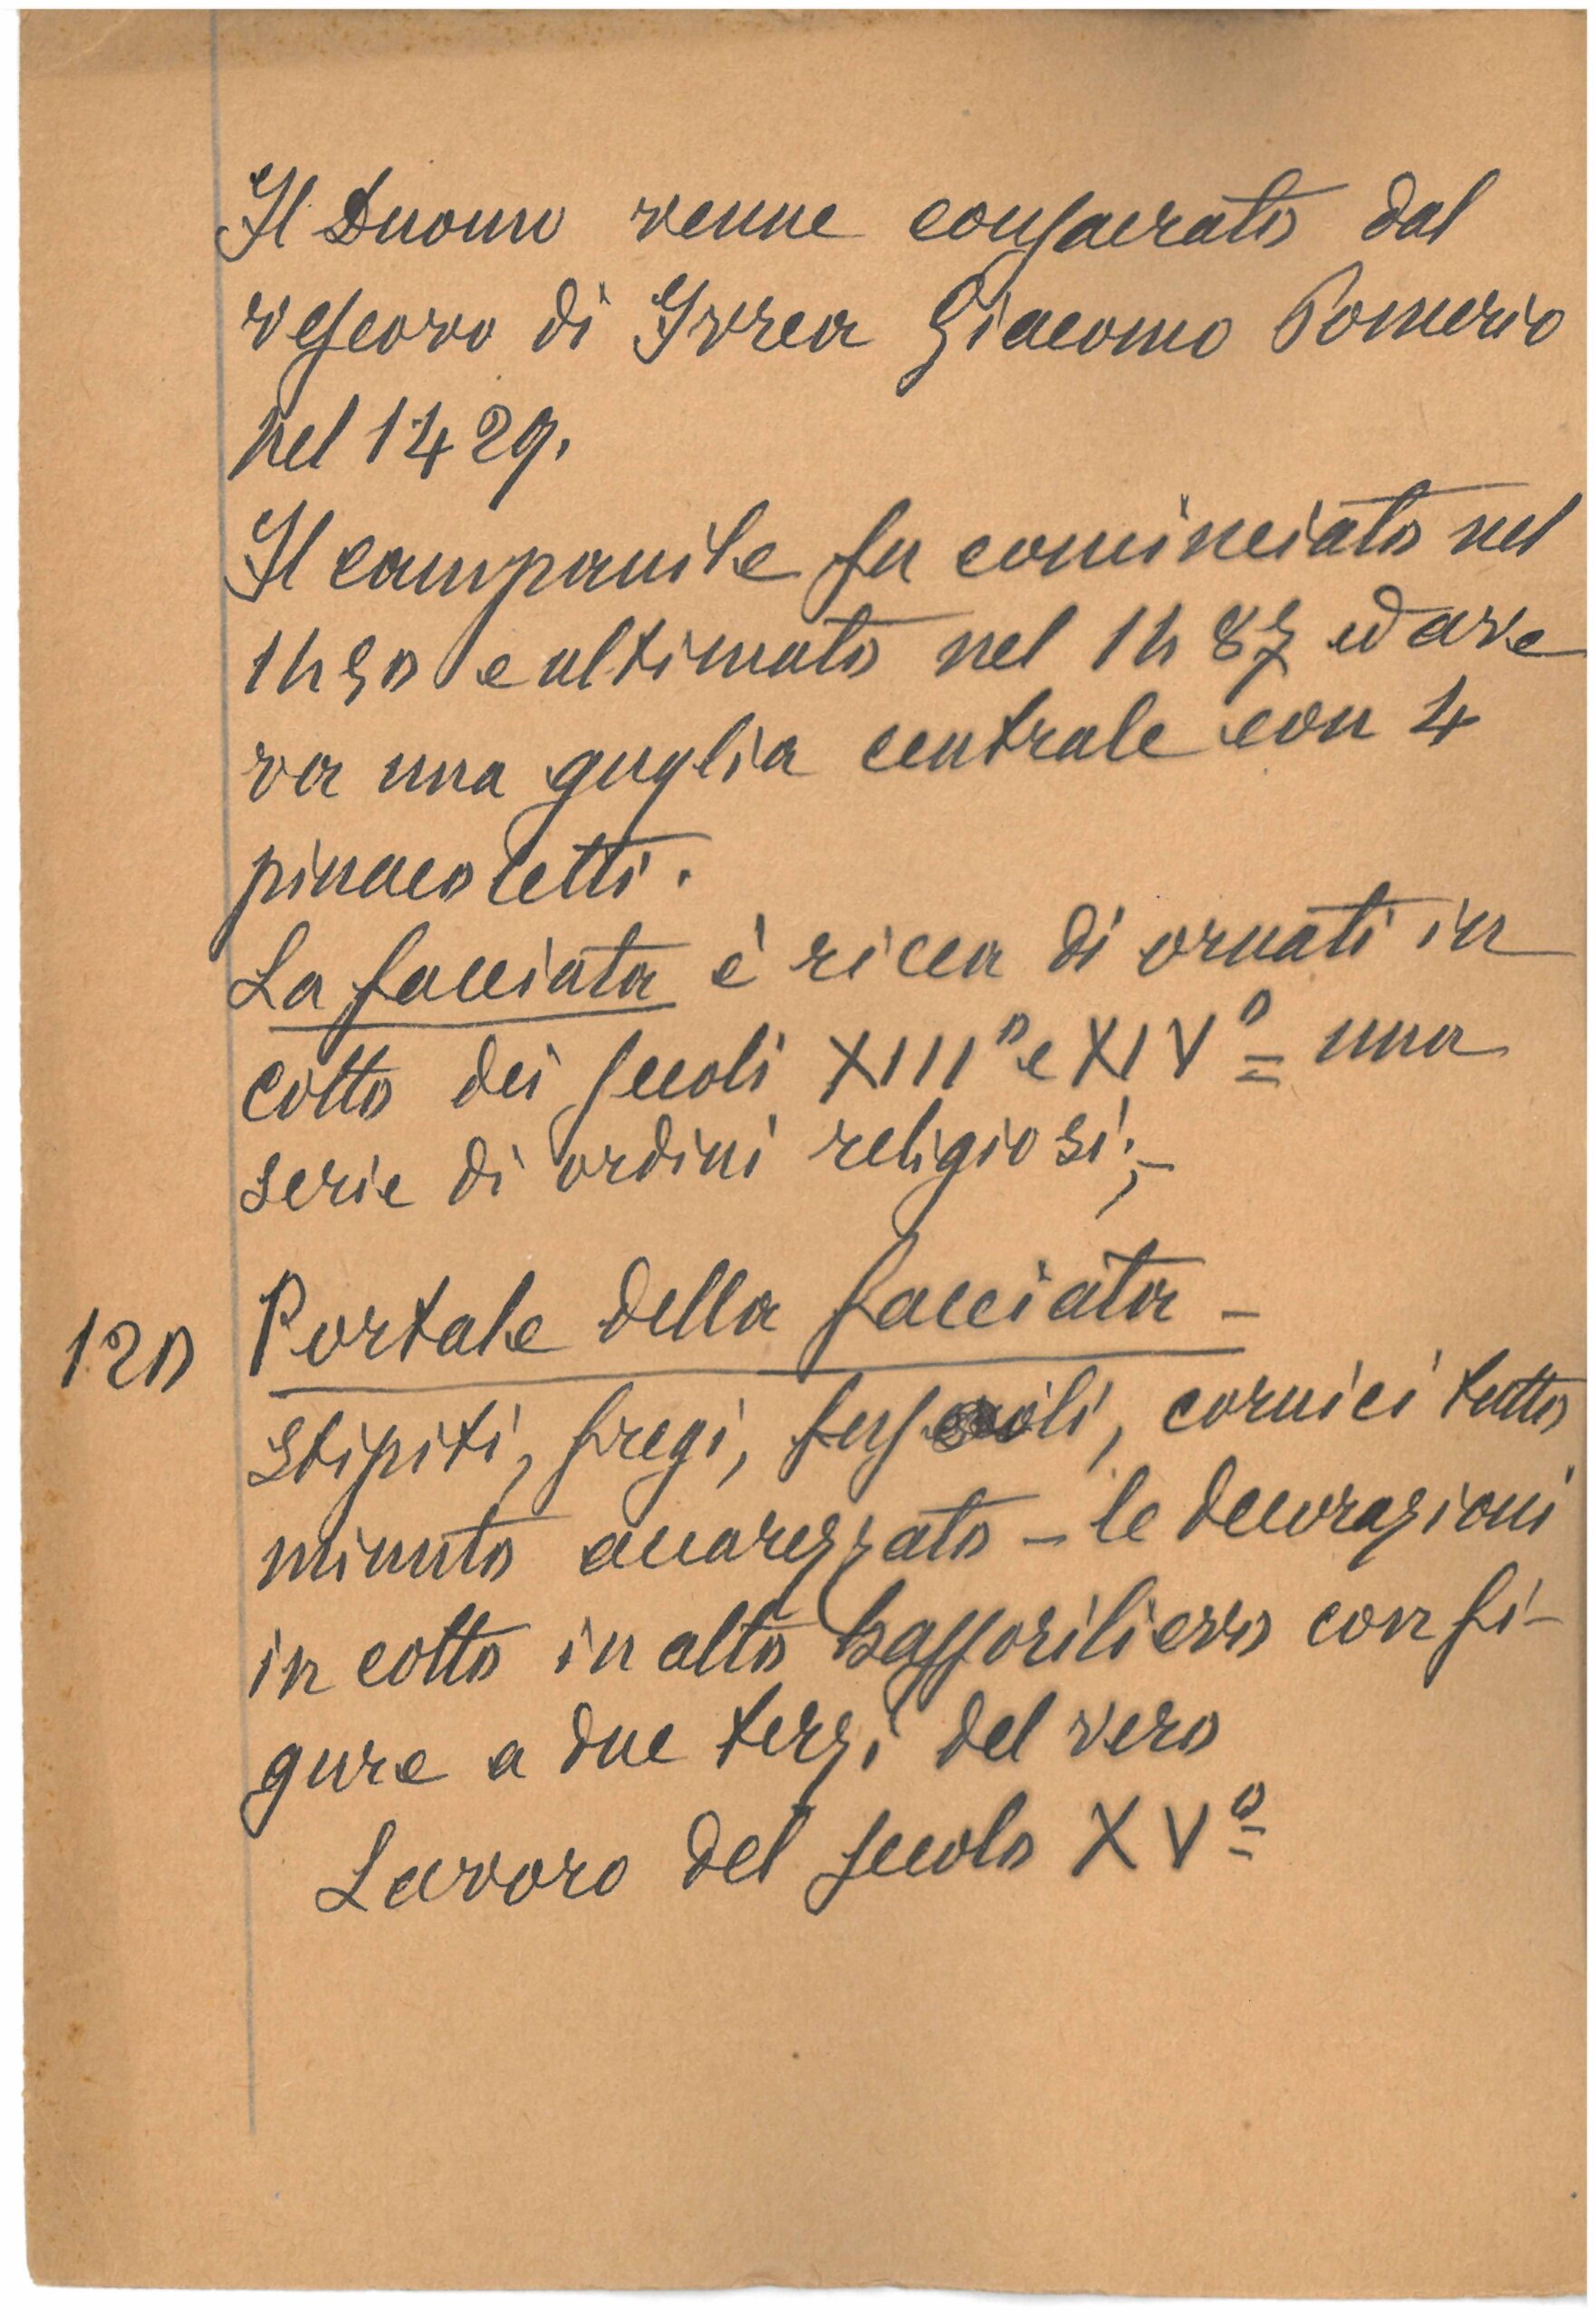 Il Duomo venne consacrato dal
vescovo di Ivrea Giacomo Pomerio
nel 1429.
Il campanile fu cominciato nel
1450 e ultimato nel 1487 ed ave
va una guglia centrale con 4
pinacoletti.
La facciata è ricca di ornati in
cotto dei secoli XIIIº e XIVº una
serie di ordini religiosi;-
120 Portale della facciata -
stipiti, fregi, cornici tutto
minuto accarezzato - le decorazioni
in cotto in alto bassorilievo con fi-
gure a due terzi del vero
Lavoro del secolo XVº